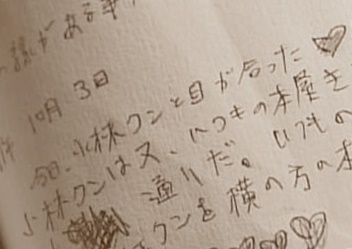 様がある事
10月3日
今日、小林クンと目が合った♡
小林クンは又、いつもの本屋を
通いだ。いつもの
クンを横の方の本